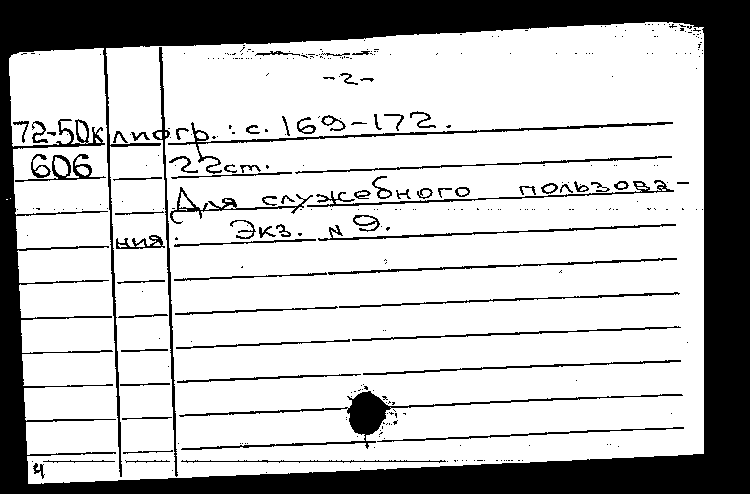 -2-
72-50к лиогр. : с. 169-172.
606 22 cm.
Для служебного пользова-
ния. Экз. N 9.
4